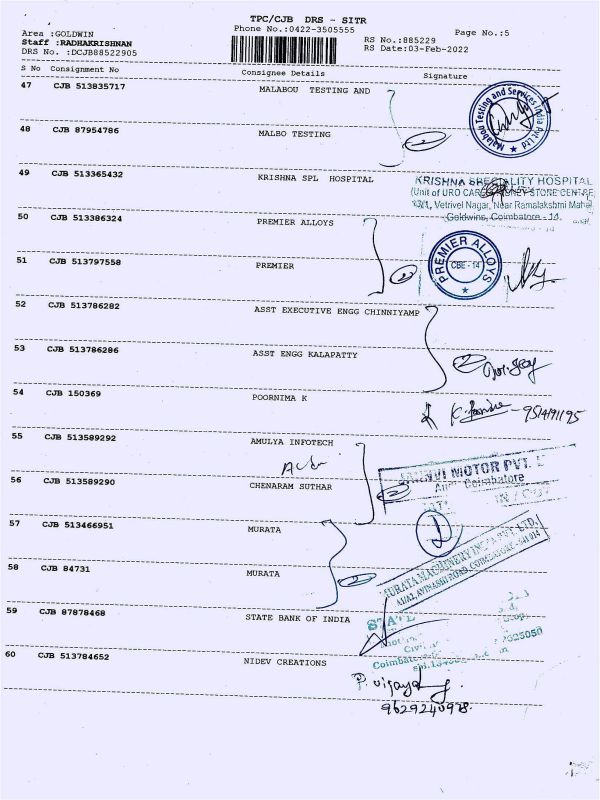 TPC/CJB DRS - SITR
Area :GOLDWIN Phone No.:0422-3505555 Page No.:5
Staff :RADHAKRISHNAN RS No.:885229
DRS No. :DCJB88522905 RS Date:03-Feb-2022
S No Consignment No Consignee Details Signature
47 CJB 513835717 MALABOU TESTING AND
Malabou Testing and Services India Pvt Ltd
48 CJB 87954786 MALBO TESTING
2
49 CJB 513365432 KRISHNA SPL HOSPITAL
KRISHNA SPECIALITY HOSPITAL
(Unit of URO CARE KIDNEY STONE CENTRE,
Vetrivel Nagar, Near Ramalakshmi Mahal
Goldwins, Coimbatore - 14
50 CJB 513386324 PREMIER ALLOYS
PREMIER ALLOYS
CBE - 14
2
51 CJB 513797558 PREMIER
52 CJB 513786282 ASST EXECUTIVE ENGG CHINNIYAMP
2
53 CJB 513786286 ASST ENGG KALAPATTY
54 CJB 150369 POORNIMA K
9514191195
55 CJB 513589292 AMULYA INFOTECH
MOTOR PVT.
Coimbatore
2
56 CJB 513589290 CHENARAM SUTHAR
57 CJB 513466951 MURATA
MURATA MACHINERY INDIA PVT. LTD.
AVINASHI ROAD, COIMBATORE - 641 014
2
58 CJB 84731 MURATA
59 CJB 87878468 STATE BANK OF INDIA
STATE
Coimbatore
60 CJB 513784652 NIDEV CREATIONS
P. vijaya
9629240978